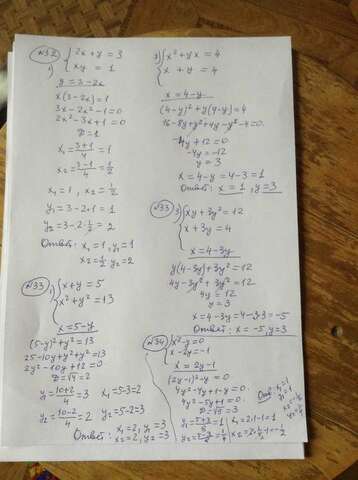 №32
1) { 2x + y = 3
xy = 1
y = 3 - 2x
x(3 - 2x) = 1
3x - 2x² - 1 = 0
2x² - 3x + 1 = 0
D = 1
x₁ = 3+1/4 = 1
x₂ = 3-1/4 = 1/2
x₁ = 1, x₂ = 1/2
y₁ = 3 - 2·1 = 1
y₂ = 3 - 2·1/2 = 2
Ответ: x₁ = 1, y₁ = 1
x₂ = 1/2 y₂ = 2
{ x² + yx = 4
x + y = 4
x = 4 - y
(4-y)² + y(4-y) = 4
16 - 8y + y² + 4y - y² - 4 = 0
-4y + 12 = 0
-4y = -12
y = 3
x = 4 - y = 4 - 3 = 1
Ответ: x = 1, y = 3
№33
3) { xy + 3y² = 12
x + 3y = 4
x = 4 - 3y
y(4 - 3y) + 3y² = 12
4y - 3y² + 3y² = 12
4y = 12
y = 3
x = 4 - 3y = 4 - 3·3 = -5
Ответ: x = -5, y = 3
№33
1) { x + y = 5
x² + y² = 13
x = 5 - y
(5-y)² + y² = 13
25 - 10y + y² + y² = 13
2y² - 10y + 12 = 0
y₁ = 10+2/4 = 3 x₁ = 5 - 3 = 2
y₂ = 10-2/4 = 2 y₂ = 5 - 2 = 3
Ответ: x₁ = 2, y₁ = 3
x₂ = 2, y₂ = 3
№34
{ x² - y = 0
x - 2y = -1
x = 2y - 1
(2y-1)² - y = 0
4y² - 4y + 1 - y = 0
4y² - 5y + 1 = 0
x₁ = 2·1 - 1 = 1